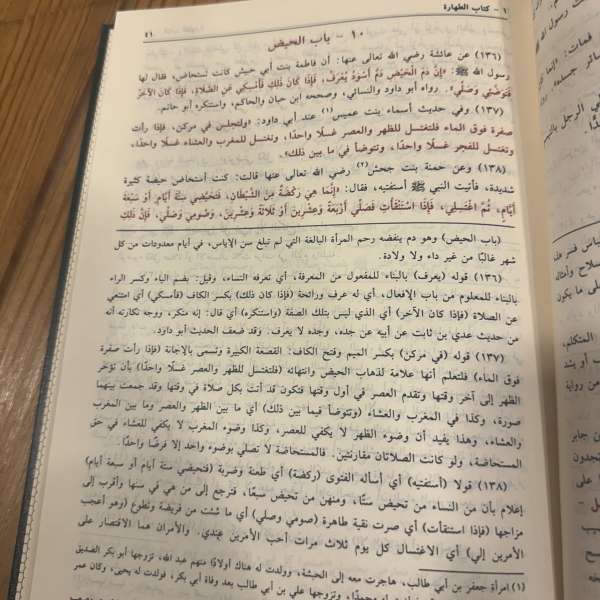 ١ - كتاب الطهارة
٤١
١٠ - باب الحيض
(١٣٦) عن عائشة رضي الله تعالى عنها: أن فاطمة بنت أبي حبيش كانت تستحاض، فقال لها
رسول الله ﷺ: «إِنَّ دَمَ الْحَيْضِ دَمٌ أَسْوَدُ يُعْرَفُ، فَإِذَا كَانَ ذَلِكَ فَأَمْسِكِي عَنِ الصَّلَاةِ، فَإِذَا كَانَ الآخَرُ
فَتَوَضَّئِي وَصَلِّي». رواه أبو داود والنسائي، وصححه ابن حبان والحاكم، واستنكره أبو حاتم.
(١٣٧) وفي حديث أسماء بنت عميس(١) عند أبي داود: «ولتجلس في مركن، فإذا رأت
صفرة فوق الماء فلتغتسل للظهر والعصر غسلًا واحدًا، وتغتسل للمغرب والعشاء غسلًا واحدًا،
وتغتسل للفجر غسلًا واحدًا، وتتوضأ في ما بين ذلك».
(١٣٨) وعن حمنة بنت جحش(٢) رضي الله تعالى عنها قالت: كنت أستحاض حيضة كثيرة
شديدة، فأتيت النبي ﷺ أستفتيه، فقال: «إِنَّمَا هِيَ رَكْضَةٌ مِنَ الشَّيْطَانِ، فَتَحَيَّضِي سِتَّةَ أَيَّامٍ أَوْ سَبْعَةَ
أَيَّامٍ، ثُمَّ اغْتَسِلِي، فَإِذَا اسْتَنْقَأْتِ فَصَلِّي أَرْبَعَةً وَعِشْرِينَ أَوْ ثَلَاثَةً وَعِشْرِينَ، وَصُومِي وَصَلِّي، فَإِنَّ ذَلِكَ
(باب الحيض) وهو دم ينفضه رحم المرأة البالغة التي لم تبلغ سن الإياس، في أيام معدودات من كل
شهر غالبًا من غير داء ولا ولادة.
(١٣٦) قوله (يعرف) بالبناء للمفعول من المعرفة، أي تعرفه النساء، وقيل: بضم الياء وكسر الراء
بالبناء للمعلوم من باب الإفعال، أي له عرف ورائحة (فإذا كان ذلك) بكسر الكاف (فأمسكي) أي امتنعي
عن الصلاة (فإذا كان الآخر) أي الذي ليس بتلك الصفة (واستنكره) أي قال: إنه منكر، ووجه نكارته أنه
من حديث عدي بن ثابت عن أبيه عن جده، وجده لا يعرف. وقد ضعف الحديث أبو داود.
(١٣٧) قوله (في مركن) بكسر الميم وفتح الكاف: القصعة الكبيرة وتسمى بالإجانة (فإذا رأت صفرة
فوق الماء) فلتعلم أنها علامة لذهاب الحيض وانتهائه (فلتغتسل للظهر والعصر غسلًا واحدًا) بأن تؤخر
الظهر إلى آخر وقتها وتقدم العصر في أول وقتها فتكون قد أتت بكل صلاة في وقتها وقد جمعت بينهما
صورة، وكذا في المغرب والعشاء (وتتوضأ فيما بين ذلك) أي ما بين الظهر والعصر وما بين المغرب
والعشاء، وهذا يفيد أن وضوء الظهر لا يكفي للعصر، وكذا وضوء المغرب لا يكفي للعشاء في حق
المستحاضة، ولو كانت الصلاتان مقارنتين. فالمستحاضة لا تصلي بوضوء واحد إلا فرضًا واحدًا.
(١٣٨) قولا (أستفتيه) أي أسأله الفتوى (ركضة) أي طعنة وضربة (فتحيضي ستة أيام أو سبعة أيام)
إعلام بأن من النساء من تحيض ستًا، ومنهن من تحيض سبعًا، فترجع إلى من هي في سنها وأقرب إلى
مزاجها (فإذا استنقأت) أي صرت نقية طاهرة (صومي وصلي) أي ما شئت من فريضة وتطوع (وهو أعجب
الأمرين إلي) أي الاغتسال كل يوم ثلاث مرات أحب الأمرين عندي. والأمران هما الاقتصار على
(١) امرأة جعفر بن أبي طالب، هاجرت معه إلى الحبشة، وولدت له هناك أولادًا منهم عبد الله، تزوجها أبو بكر الصديق
وتزوجها علي بن أبي طالب بعد وفاة أبي بكر، فولدت له يحيى، وكان عمر